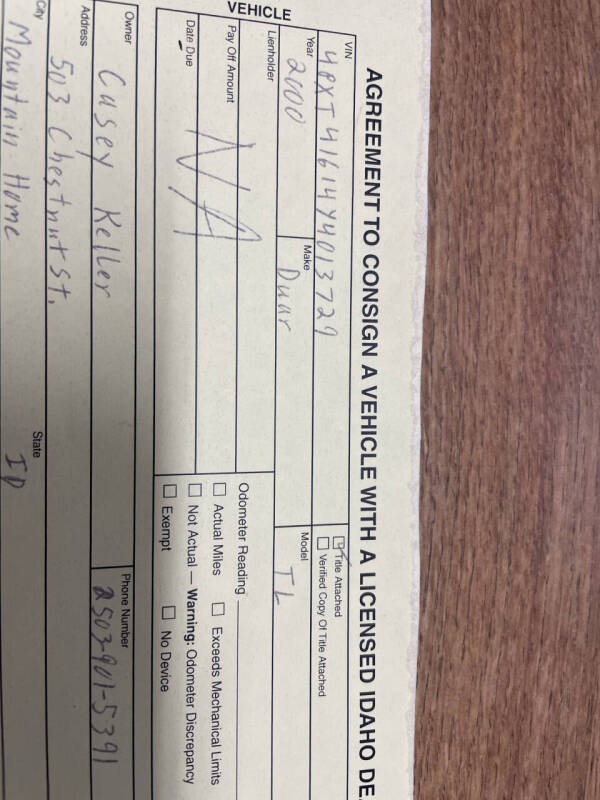 AGREEMENT TO CONSIGN A VEHICLE WITH A LICENSED IDAHO DE
VEHICLE
VIN
4PXT41614Y4013729
Title Attached
Verified Copy Of Title Attached
Year 2000
Make Duar
Model TL
Lienholder
Odometer Reading
Pay Off Amount
NA
Actual Miles
Exceeds Mechanical Limits
Date Due
Not Actual — Warning: Odometer Discrepancy
Exempt
No Device
Owner Casey Keller
Phone Number 2503-901-5391
Address 503 Chestnut St.
City Mountain Home
State ID